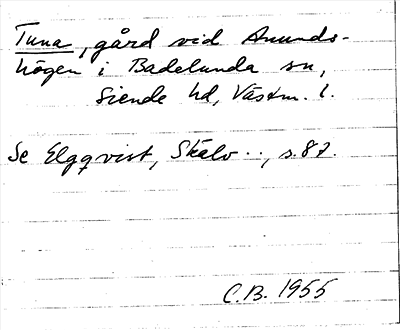 Tuna, gård vid Anunds-
högen i Badelunda sn,
Siende hd, Västm. l.
Se Elgqvist, Skälv.., s. 87.
C.B. 1955